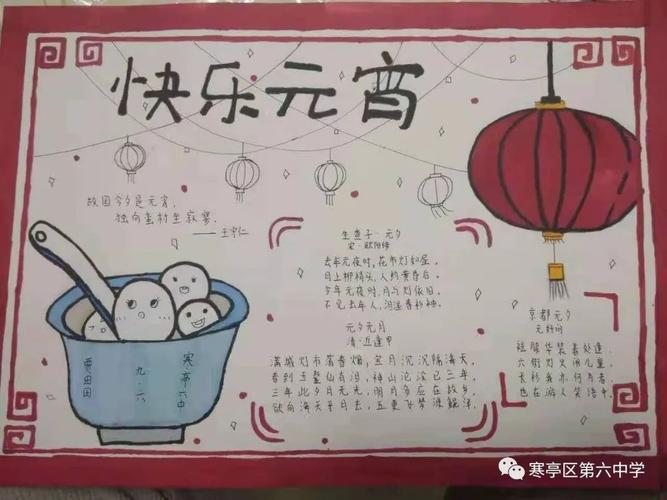 快乐元宵
故园今夕是元宵,
独向蛮村坐寂寥。
——王守仁
生查子·元夕
宋·欧阳修
去年元夜时,花市灯如昼。
月上柳梢头,人约黄昏后。
今年元夜时,月与灯依旧。
不见去年人,泪湿春衫袖。
元夕无月
清·丘逢甲
满城灯市荡春烟,宝月沉沉隔海天。
看到六鳌仙有泪,神山沦没已三年。
三年此夕月无光,明月多应在故乡。
欲向海天寻月去,五更飞梦渡鲲洋。
京都元夕
元好问
袨服华装着处逢,
六街灯火闹儿童。
长衫我亦何为者,
也在游人笑语中。
寒亭六中
九·六
寒亭区第六中学